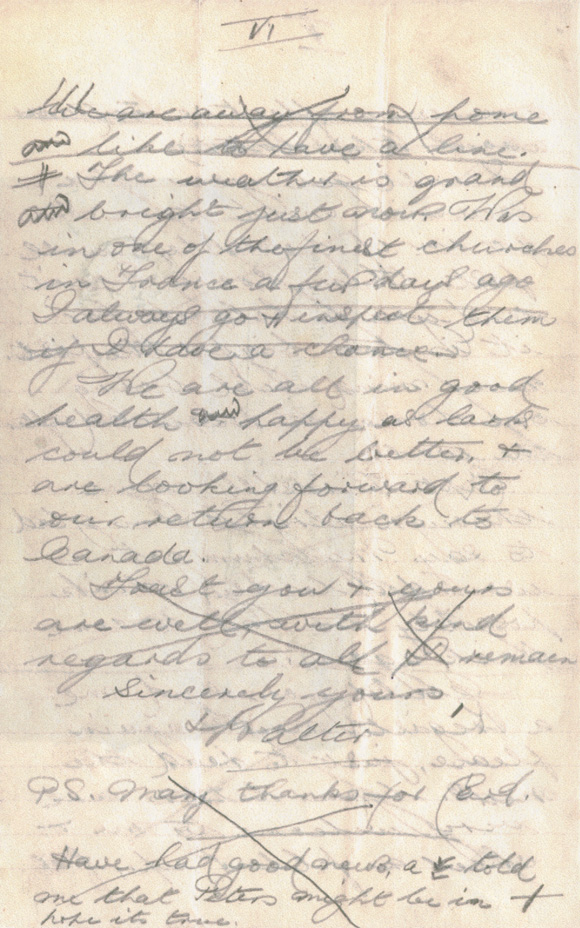 VI
We are away from home
and like to have a line.
# The weather is grand
and bright just now. Was
in one of the finest churches
in France a few days ago
I always go & inspect them
if I have a chance.
We are all in good
health and happy as larks
could not be better, &
are looking forward to
our return back to
Canada.
Trust you & yours
are well, with kind
regards to all I remain
Sincerely yours
Walter
P.S. Many thanks for Card.
Have had good news, a told
me that Peters might be in +
hope its true.